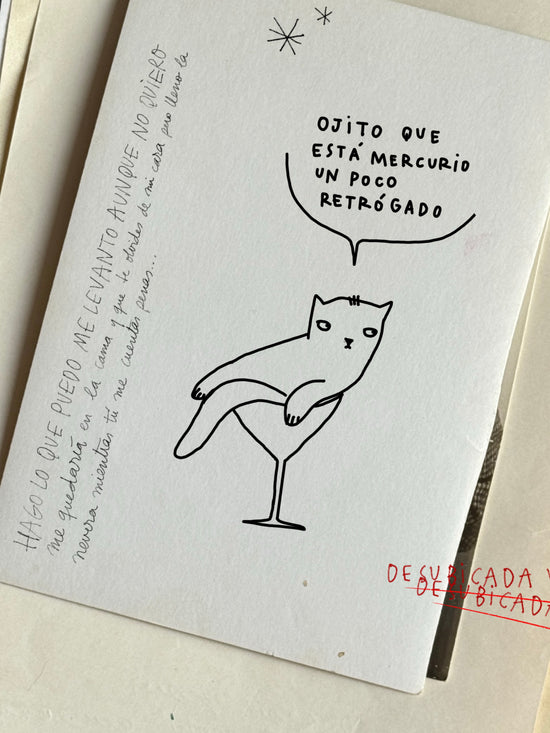 OJITO QUE
ESTÁ MERCURIO
UN POCO
RETRÓGADO
HAGO LO QUE PUEDO ME LEVANTO AUNQUE NO QUIERO
me quedaría en la cama y que te olvides de mi cara pero lleno la
nevera mientras tú me cuentas penas...
DESUBICADA Y
DESUBICADA